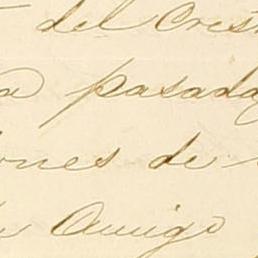 del Cres
a pasada
ones de
Amigo